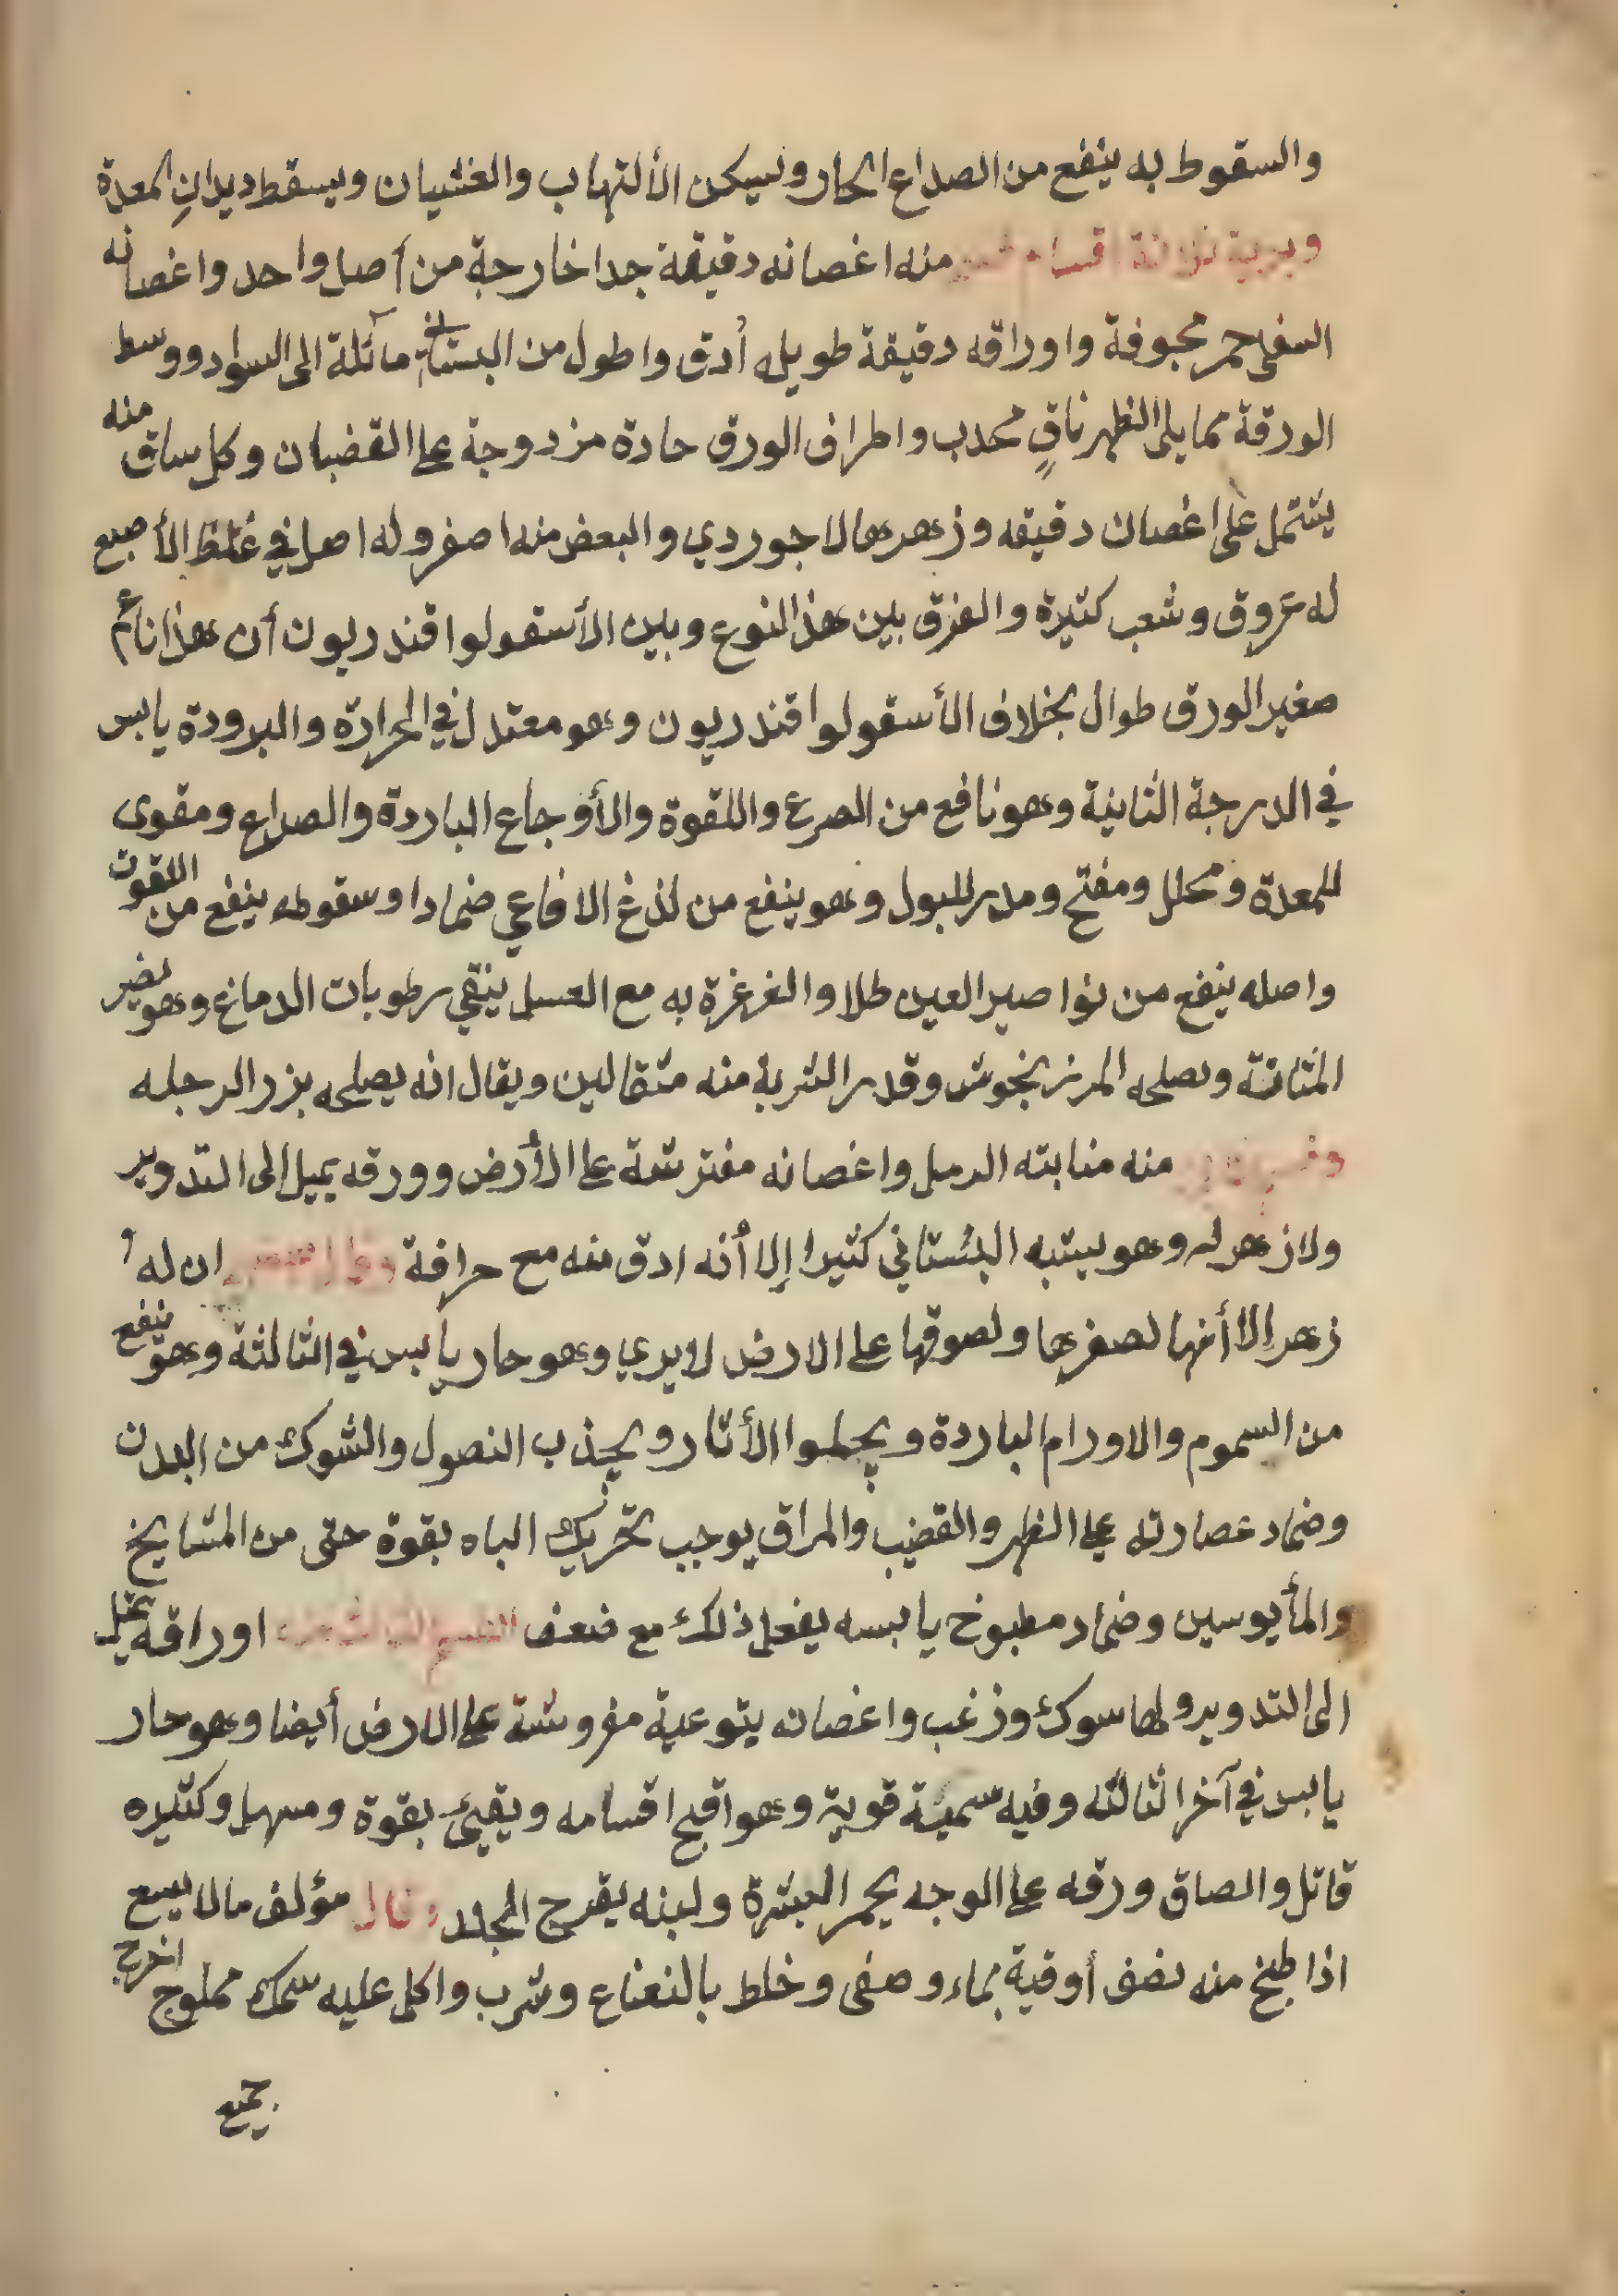 والسقوط به ينفع من الصداع الحار ويسكن الألتهاب والغشيان ويسقط ديدان المعدة
وبرية ثلاثة اقسام قسم منه اغصانه دقيقة جدا خارجة من أصل واحد واغصانه
السفلى حمر مجوفة واوراقه دقيقة طويله أدق واطول من البستاني مائلة الى السواد ووسط
الورقة مما يلى الظهر ناقٍ محدب واطراف الورق حادة مزدوجة على القضبان وكل ساق منه
يشتمل على اغصان دقيقه وزهرها لاجوردي والبعض منه اصفر وله اصل في غلظ الأصبع
له عروق وشعب كثيرة والفرق بين هذا النوع وبين الأسقولوا قندريون أن هذا ناعم
صغير الورق طوال بخلاف الأسقولوا قندريون وهو معتدل في الحرارة والبرودة يابس
في الدرجة الثانية وهو نافع من الصرع واللقوة والأوجاع الباردة والصداع ومقوى
للمعدة ومحلل ومفتح ومدر للبول وهو ينفع من لذغ الافاعي ضمادا وسقوطه ينفع من اللقوة
واصله ينفع من نواصير العين طلا والغرغرة به مع العسل ينقي رطوبات الدماغ وهو يضر
المثانة ويصلحه المرزنجوش وقدر الشربة منه مثقالين ويقال انه يصلحه بزر الرجله
وقسم منه منابته الرمل واغصانه مفترشة على الأرض وورقه يميل الى التدوير
ولا زهر له وهو يشبه البستاني كثيرا إلا أنه ادق منه مع حرافة وقال بعضهم ان له
زهر إلا أنها لصغرها ولصوقها على الارض لا يري وهو حار يابس في الثالثة وهو ينفع
من السموم والاورام الباردة ويجلوا الأثار ويجذب النصول والشوك من البدن
وضماد عصارته على الظهر والقضيب والمراق يوجب تحريك الباه بقوة حتى من المشايخ
والمأيوسين وضماد مطبوخ يابسه يفعل ذلك مع ضعف القسم الثالث منه اوراقه تميل
الى التدوير ولها سوك وزغب واغصانه يتوعية مفروشة على الارض أيضا وهو حار
يابس في آخر الثالثه وفيه سمية قوية وهو اقبح اقسامه ويقيئ بقوة ومسهل وكثيره
قاتل والصاق ورقه على الوجه يحمر البشرة ولبنه يقرح الجلد وقال مؤلف مالا يسع
اذا طبخ منه نصف أوقية بماء وصفى وخلط بالنعناع وشرب واكل عليه سمك مملوح اخرج
جميع